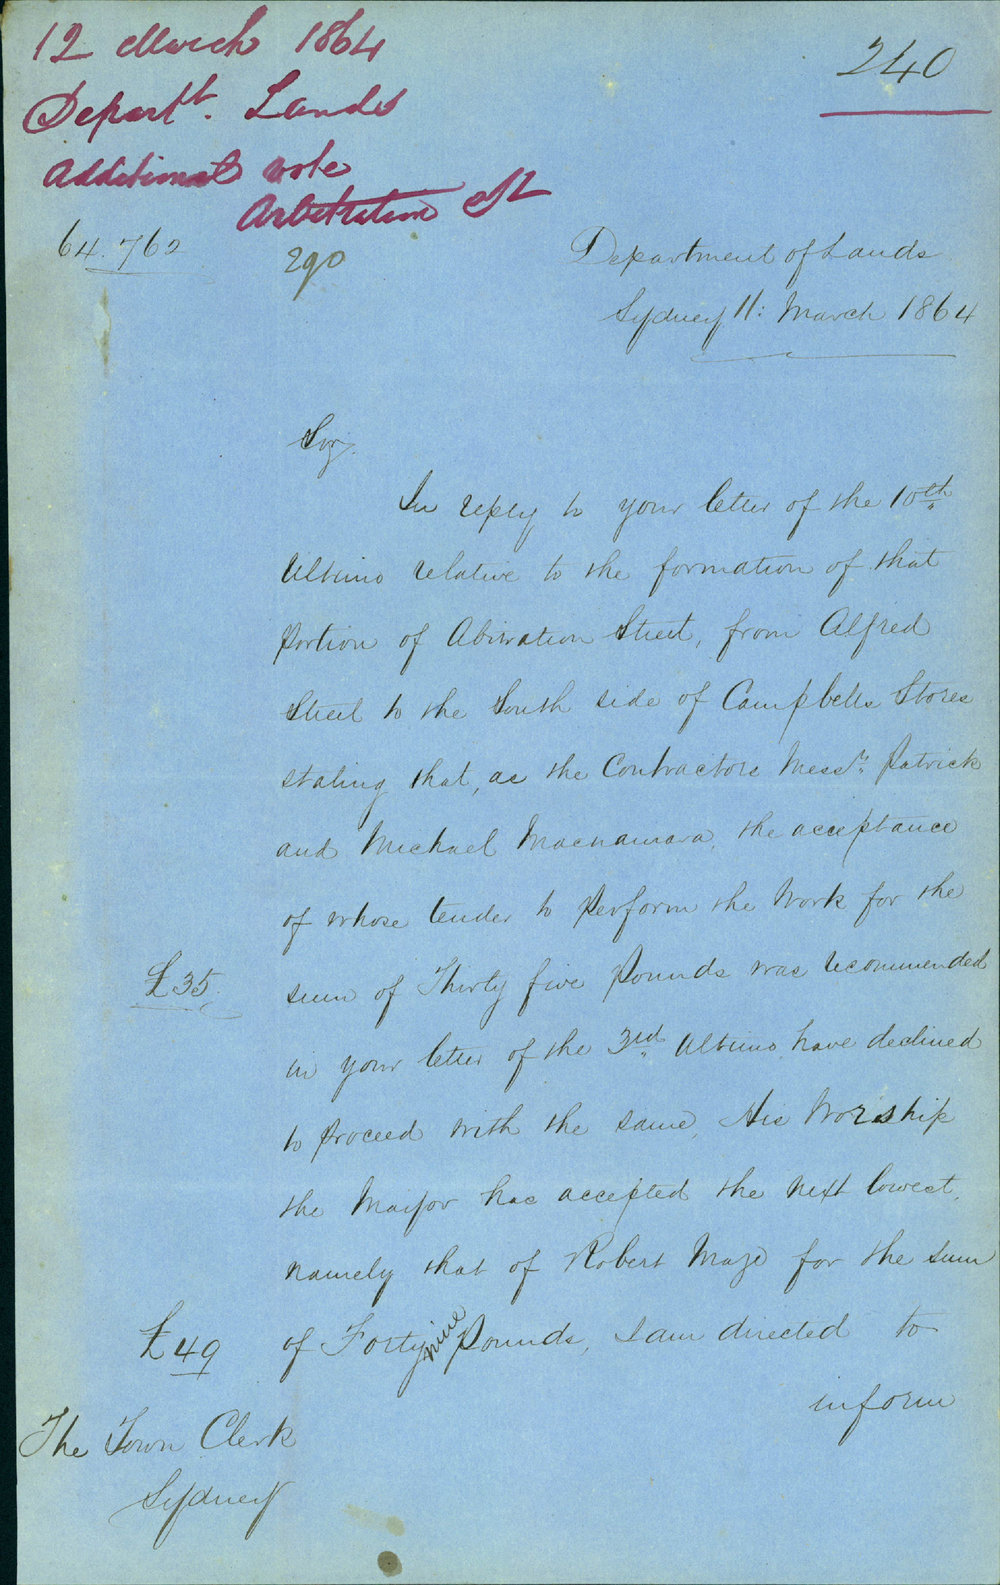 12 March 1864
Departt. Lands
Additional vote
Arbitration St
240
64.762
290
Department of Lands
Sydney 11: March 1864
Sir,
In reply to your letter of the 10th
Ultimo relative to the formation of that
Portion of Abitration Street, from Alfred
Street to the South side of Campbells Stores
stating that, as the Contractors Messrs. Patrick
and Michael Macnamara, the acceptance
of whose tender to Perform the Work for the
£35
sum of Thirty five Pounds was recommended
in your letter of the 3rd Ultimo, have declined
to Proceed with the same, His Worship
the Mayor has accepted the next lowest,
namely that of Robert Maze for the sum
£49
of Forty nine Pounds, I am directed to
inform
The Town Clerk
Sydney